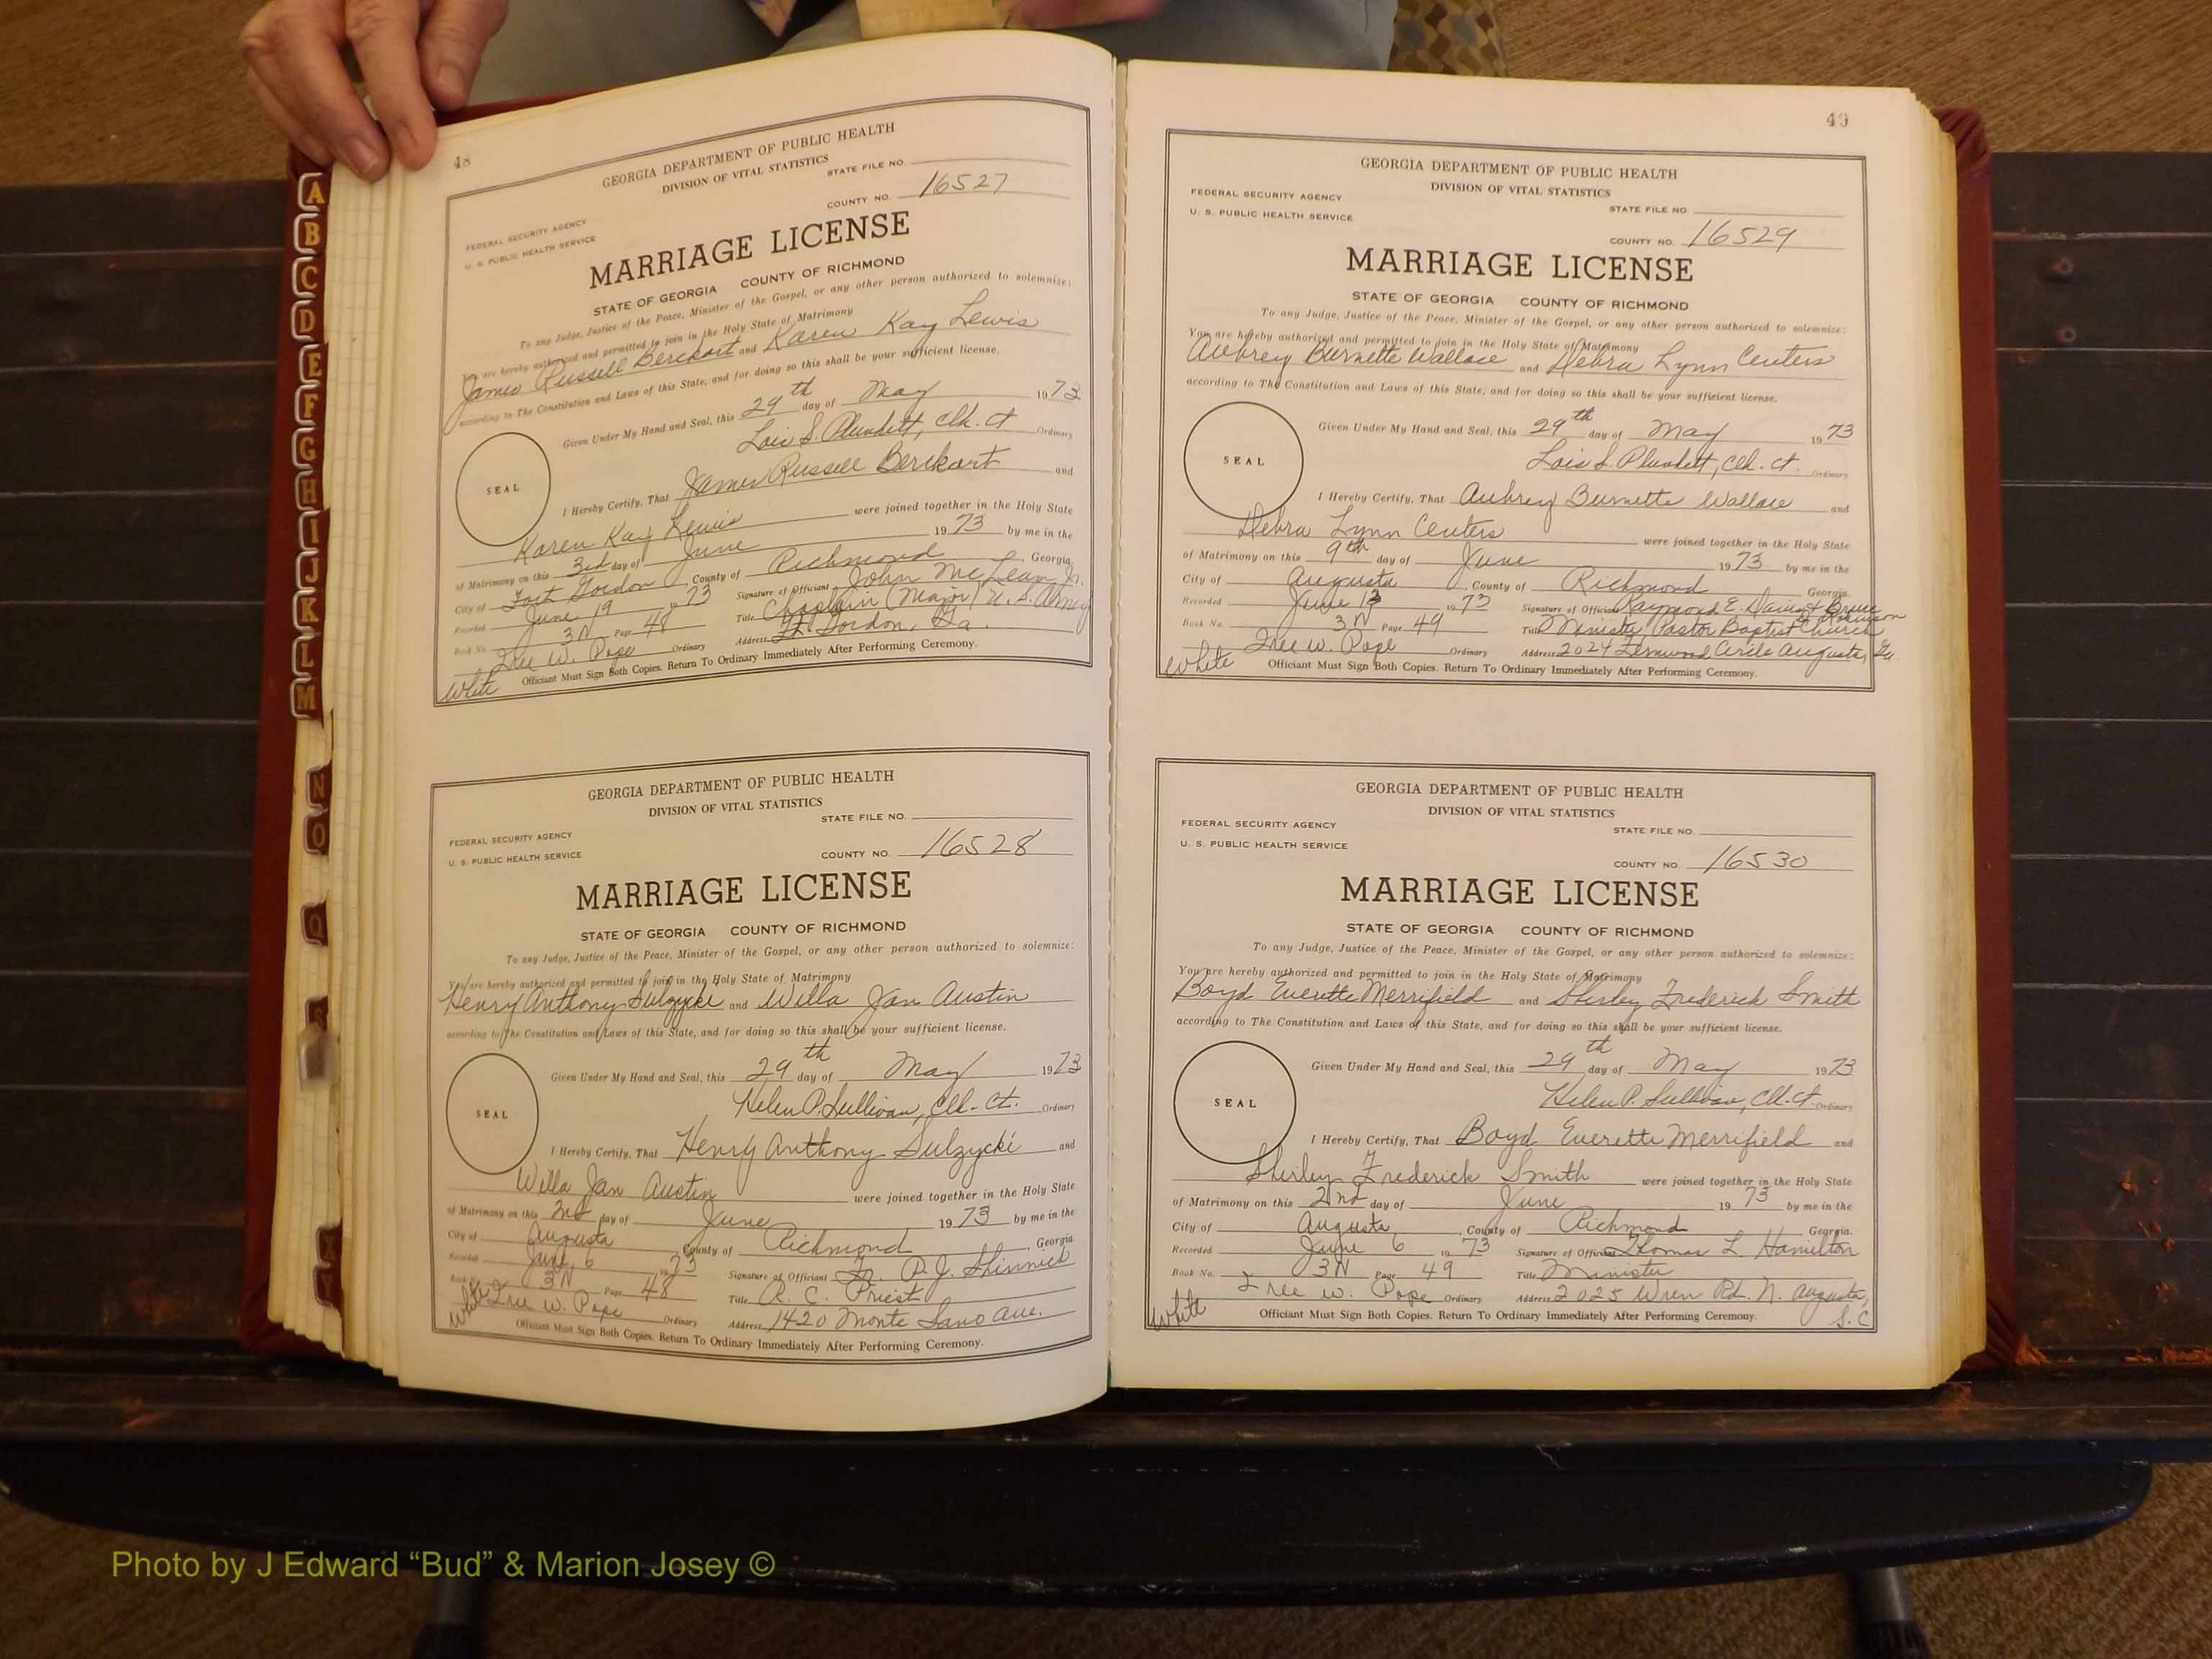 48
GEORGIA DEPARTMENT OF PUBLIC HEALTH
DIVISION OF VITAL STATISTICS
STATE FILE NO.
COUNTY NO. 16527
FEDERAL SECURITY AGENCY
U. S. PUBLIC HEALTH SERVICE
MARRIAGE LICENSE
STATE OF GEORGIA COUNTY OF RICHMOND
To any Judge, Justice of the Peace, Minister of the Gospel, or any other person authorized to solemnize:
You are hereby authorized and permitted to join in the Holy State of Matrimony
James Russell Berckart and Karen Kay Lewis
according to The Constitution and Laws of this State, and for doing so this shall be your sufficient license.
Given Under My Hand and Seal, this 29th day of May 1973
Lois S. Plunkett, Clk. Ct. Ordinary
SEAL
I Hereby Certify, That James Russell Berckart and
Karen Kay Lewis were joined together in the Holy State
of Matrimony on this 3rd day of June 1973 by me in the
City of Fort Gordon, County of Richmond, Georgia.
Recorded June 19 1973 Signature of Officiant John McLean Jr.
Book No. 3N Page 48 Title Chaplain (Major) U.S. Army
W. Pope Ordinary Address Ft. Gordon, Ga.
White Officiant Must Sign Both Copies. Return To Ordinary Immediately After Performing Ceremony.
GEORGIA DEPARTMENT OF PUBLIC HEALTH
DIVISION OF VITAL STATISTICS
STATE FILE NO.
FEDERAL SECURITY AGENCY
U. S. PUBLIC HEALTH SERVICE
COUNTY NO. 16528
MARRIAGE LICENSE
STATE OF GEORGIA COUNTY OF RICHMOND
To any Judge, Justice of the Peace, Minister of the Gospel, or any other person authorized to solemnize:
You are hereby authorized and permitted to join in the Holy State of Matrimony
Henry Anthony Sulzycki and Willa Jan Austin
according to The Constitution and Laws of this State, and for doing so this shall be your sufficient license.
Given Under My Hand and Seal, this 29th day of May 1973
Helen P. Sullivan, Clk. Ct. Ordinary
SEAL
I Hereby Certify, That Henry Anthony Sulzycki and
Willa Jan Austin were joined together in the Holy State
of Matrimony on this day of June 1973 by me in the
City of Augusta, County of Richmond, Georgia.
Recorded June 6 1973 Signature of Officiant Fr. P. J. Shinnick
Book No. 3N Page 48 Title R. C. Priest
W. Pope Ordinary Address 1420 Monte Sano Ave.
White Officiant Must Sign Both Copies. Return To Ordinary Immediately After Performing Ceremony.
49
GEORGIA DEPARTMENT OF PUBLIC HEALTH
DIVISION OF VITAL STATISTICS
FEDERAL SECURITY AGENCY
STATE FILE NO.
U. S. PUBLIC HEALTH SERVICE
COUNTY NO. 16529
MARRIAGE LICENSE
STATE OF GEORGIA COUNTY OF RICHMOND
To any Judge, Justice of the Peace, Minister of the Gospel, or any other person authorized to solemnize:
You are hereby authorized and permitted to join in the Holy State of Matrimony
Aubrey Burnette Wallace and Debra Lynn Centers
according to The Constitution and Laws of this State, and for doing so this shall be your sufficient license.
Given Under My Hand and Seal, this 29th day of May 1973
Lois S. Plunkett, Clk. Ct. Ordinary
SEAL
I Hereby Certify, That Aubrey Burnette Wallace and
Debra Lynn Centers were joined together in the Holy State
of Matrimony on this 9th day of June 1973 by me in the
City of Augusta, County of Richmond, Georgia.
Recorded June 13 1973 Signature of Officiant Raymond E. Davis & Bruce Robinson
Book No. 3N Page 49 Title Minister Pastor Baptist Church
W. Pope Ordinary Address 2024 Fernwood Circle Augusta, Ga.
White Officiant Must Sign Both Copies. Return To Ordinary Immediately After Performing Ceremony.
GEORGIA DEPARTMENT OF PUBLIC HEALTH
DIVISION OF VITAL STATISTICS
FEDERAL SECURITY AGENCY
STATE FILE NO.
U. S. PUBLIC HEALTH SERVICE
COUNTY NO. 16530
MARRIAGE LICENSE
STATE OF GEORGIA COUNTY OF RICHMOND
To any Judge, Justice of the Peace, Minister of the Gospel, or any other person authorized to solemnize:
You are hereby authorized and permitted to join in the Holy State of Matrimony
Boyd Everette Merrifield and Shirley Frederick Smith
according to The Constitution and Laws of this State, and for doing so this shall be your sufficient license.
Given Under My Hand and Seal, this 29th day of May 1973
Helen P. Sullivan, Clk. Ct. Ordinary
SEAL
I Hereby Certify, That Boyd Everette Merrifield and
Shirley Frederick Smith were joined together in the Holy State
of Matrimony on this 2nd day of June 1973 by me in the
City of Augusta, County of Richmond, Georgia.
Recorded June 6 1973 Signature of Officiant Thomas L. Hamilton
Book No. 3N Page 49 Title Minister
W. Pope Ordinary Address 2025 Wren Rd. N. Augusta, S.C
White Officiant Must Sign Both Copies. Return To Ordinary Immediately After Performing Ceremony.
A
B
C
D
E
F
G
H
I
J
K
L
M
N
O
Q
S
X
Y
Photo by J Edward “Bud” & Marion Josey ©